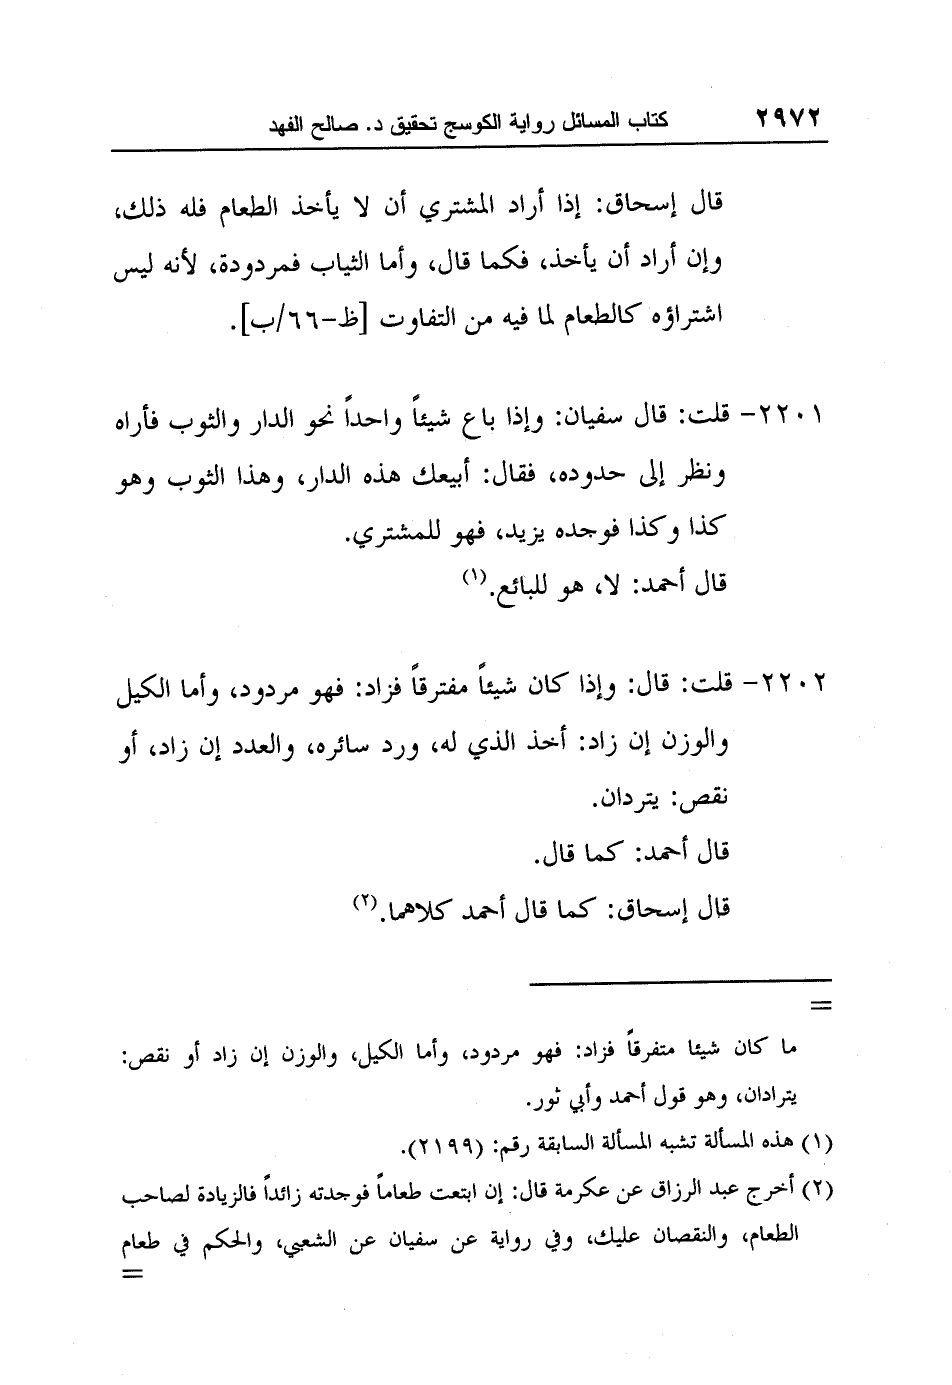 ٢٩٧٢ كتاب المسائل رواية الكوسج تحقيق د. صالح الفهد
قال إسحاق: إذا أراد المشتري أن لا يأخذ الطعام فله ذلك،
وإن أراد أن يأخذ، فكما قال، وأما الثياب فمردودة، لأنه ليس
اشتراؤه كالطعام لما فيه من التفاوت [ظ-٦٦/ب].
٢٢٠١- قلت: قال سفيان: وإذا باع شيئاً واحداً نحو الدار والثوب فأراه
ونظر إلى حدوده، فقال: أبيعك هذه الدار، وهذا الثوب وهو
كذا وكذا فوجده يزيد، فهو للمشتري.
قال أحمد: لا، هو للبائع.(١)
٢٢٠٢- قلت: قال: وإذا كان شيئاً مفترقاً فزاد: فهو مردود، وأما الكيل
والوزن إن زاد: أخذ الذي له، ورد سائره، والعدد إن زاد، أو
نقص: يتردان.
قال أحمد: كما قال.
قال إسحاق: كما قال أحمد كلاهما.(٢)
=
ما كان شيئا متفرقاً فزاد: فهو مردود، وأما الكيل، والوزن إن زاد أو نقص:
يترادان، وهو قول أحمد وأبي ثور.
(١) هذه المسألة تشبه المسألة السابقة رقم: (٢١٩٩).
(٢) أخرج عبد الرزاق عن عكرمة قال: إن ابتعت طعاماً فوجدته زائداً فالزيادة لصاحب
الطعام، والنقصان عليك، وفي رواية عن سفيان عن الشعبي، والحكم في طعام
=